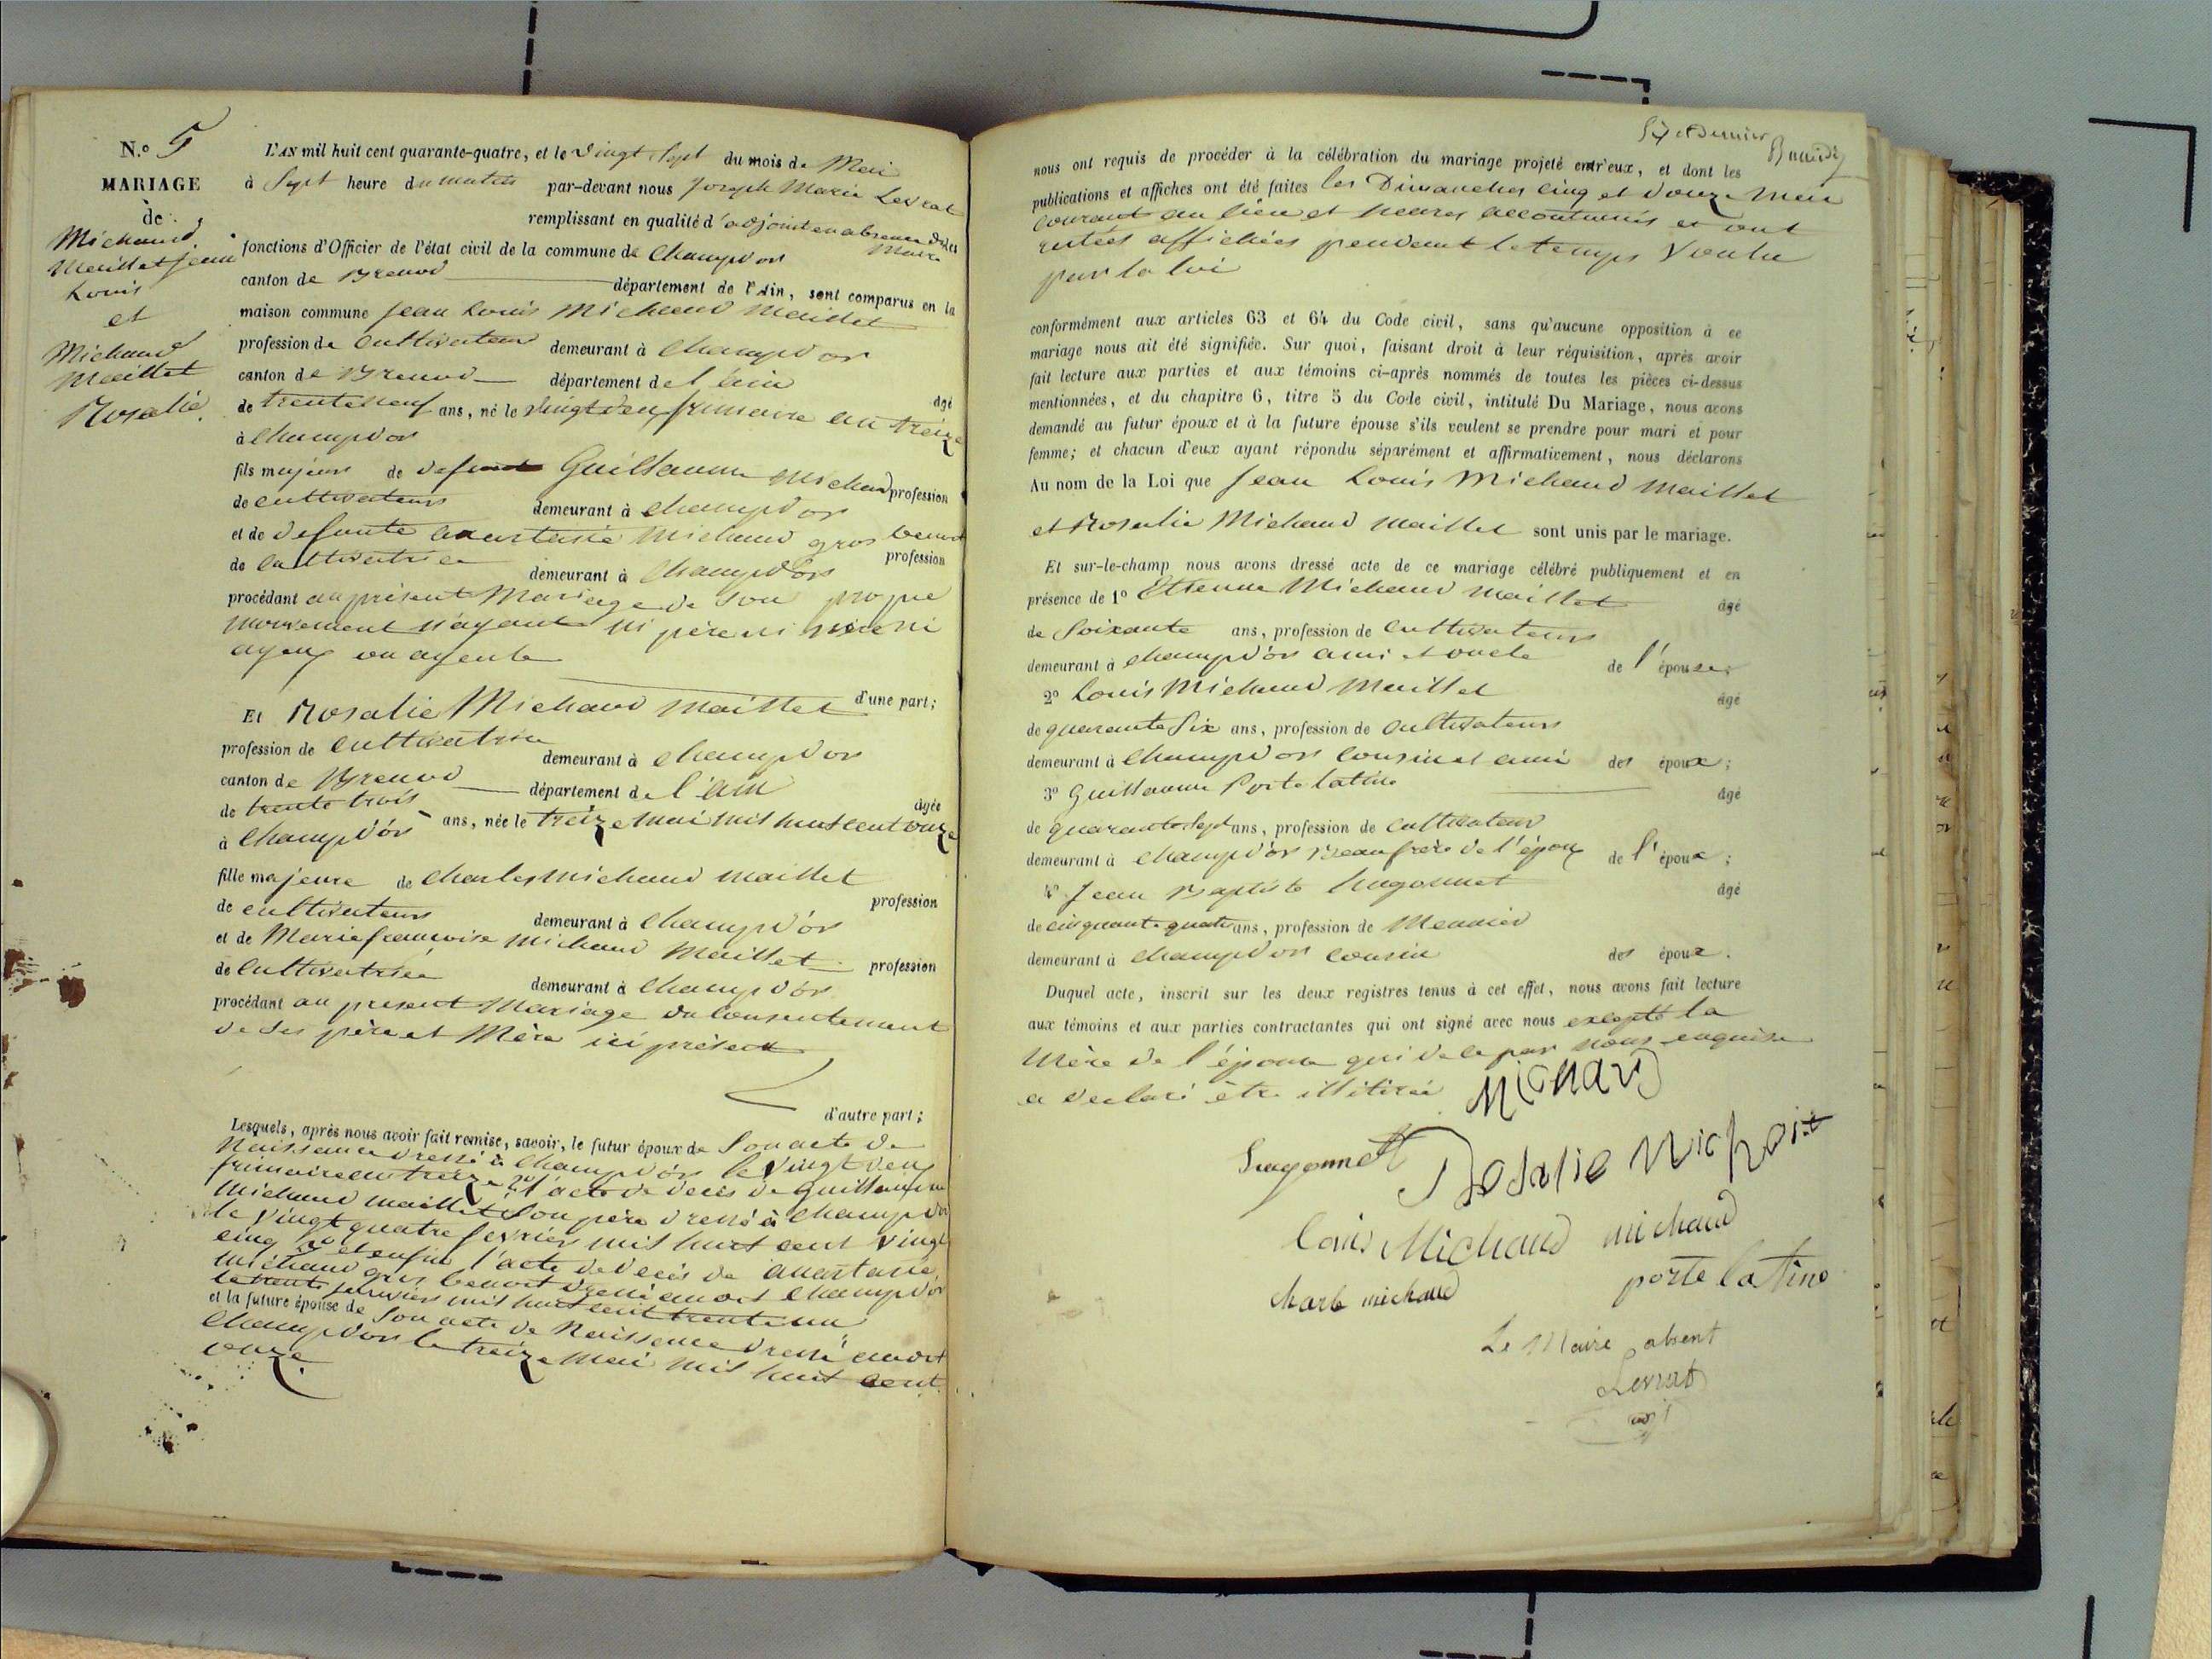 N.º 5
MARIAGE
de
Michaud
Maillet Jean
Louis
et
Michaud
Maillet
Rosalie
L'AN mil huit cent quarante-quatre, et le vingt sept du mois de Mai
à Sept heure du matin par-devant nous Joseph Marie Levrat
remplissant en qualité d'adjoint en absence du Maire
fonctions d'Officier de l'état civil de la commune de Champdor
canton de Brenod département de l'Ain, sont comparus en la
maison commune Jean Louis Michaud Maillet
profession de Cultivateur demeurant à Champdor
canton de Brenod département de l'ain
âgé
de trente neuf ans, né le vingt deux frimaire an treize
à Champdor
fils majeur de defunt Guillaume Michaud profession
de cultivateur demeurant à champdor
et de defunte anastasie Michaud gros benoit
profession
de Cultivatrice demeurant à Champdor
procédant au présent Mariage de son propre
mouvement n'ayant ni père ni mère ni
ayeux ou ayeule
d'une part;
Et Rosalie Michaud Maillet
profession de Cultivatrice demeurant à champdor
canton de Brenod département de l'ain
âgée
de trente trois ans, née le treize mai mil huit cent onze
à Champdor
fille majeure de Charles Michaud Maillet
profession
de cultivateur demeurant à Champd'or
et de Marie françoise Michaud Maillet profession
de Cultivatrice demeurant à Champd'or
procédant au present Mariage du Consentement
de ses père et Mère ici présent
d'autre part;
Lesquels, après nous avoir fait remise, savoir, le futur époux de Son acte de
Naissance dressé à Champdor le vingt deux
frimaire an treize 2º l'acte de décès de Guillaume
Michaud Maillet Son père dressé à Champdor
le vingt quatre fevrier mil huit cent vingt
cinq 3º et enfin l'acte de décès de anastasie
Michaud gros benoit dressé audit Champdor
le trente janvier mil huit cent trente un
et la future épouse de Son acte de Naissance dressé audit
Champdor le treize Mai mil huit cent
onze.
nous ont requis de procéder à la célébration du mariage projeté entr'eux, et dont les
publications et affiches ont été faites les Dimanches cinq et douze Mai
courant au lieu et heures accoutumés et ont
restées affichées pendant le temps Voulu
par la loi
conformément aux articles 63 et 64 du Code civil, sans qu'aucune opposition à ce
mariage nous ait été signifiée. Sur quoi, faisant droit à leur réquisition, après avoir
fait lecture aux parties et aux témoins ci-après nommés de toutes les pièces ci-dessus
mentionnées, et du chapitre 6, titre 5 du Code civil, intitulé Du Mariage, nous avons
demandé au futur époux et à la future épouse s'ils veulent se prendre pour mari et pour
femme; et chacun d'eux ayant répondu séparément et affirmativement, nous déclarons
Au nom de la Loi que Jean Louis Michaud Maillet
et Rosalie Michaud Maillet sont unis par le mariage.
Et sur-le-champ nous avons dressé acte de ce mariage célébré publiquement et en
présence de 1º Etienne Michaud Maillet âgé
de Soixante ans, profession de Cultivateur
demeurant à champd'or ami et oncle de l'épouse;
2º Louis Michaud Maillet âgé
de quarante Six ans, profession de Cultivateur
demeurant à Champdor cousin et ami des époux;
3º Guillaume Porte latine âgé
de quarante Sept ans, profession de Cultivateur
demeurant à Champd'or Beaufrère de l'époux de l'époux;
4º Jean Baptiste hugonnet âgé
de cinquante quatre ans, profession de Meunier
demeurant à Champdor cousin des époux.
Duquel acte, inscrit sur les deux registres tenus à cet effet, nous avons fait lecture
aux témoins et aux parties contractantes qui ont signé avec nous excepté la
Mère de l'épouse qui de ce par nous enquise
a declaré être illitirée Michaud
hugonnet Rosalie Michoit
Louis Michaud michaud
Charle michaud porte latine
Le Maire absent
Levrat
adj